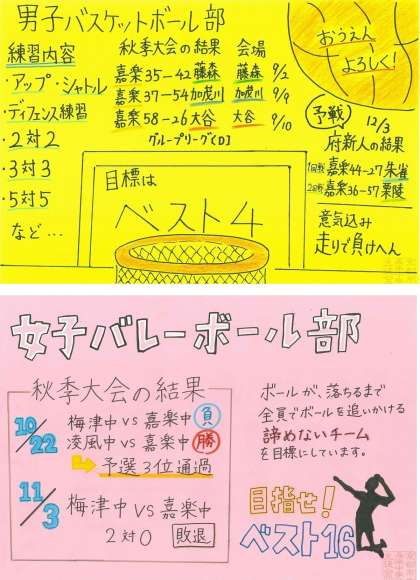 男子バスケットボール部
練習内容
・アップ・シャトル
・ディフェンス練習
・2対2
・3対3
・5対5
など…
秋季大会の結果 会場
嘉楽35-42藤森 藤森 9/2
嘉楽37-54加茂川 加茂川 9/9
嘉楽58-26大谷 大谷 9/10
グループリーグ〔D〕
目標は
ベスト4
おうえん
よろしく!
予戦 12/3
府新人の結果
1回戦嘉楽44-27朱雀
2回戦嘉楽36-57栗陵
意気込み
走りで負けへん
女子バレーボール部
秋季大会の結果
10/22
梅津中 vs 嘉楽中 負
凌風中 vs 嘉楽中 勝
予選3位通過
11/3
梅津中 vs 嘉楽中
2対0 敗退
ボールが、落ちるまで
全員でボールを追いかける
諦めないチーム
を目標にしています。
目指せ!
ベスト16